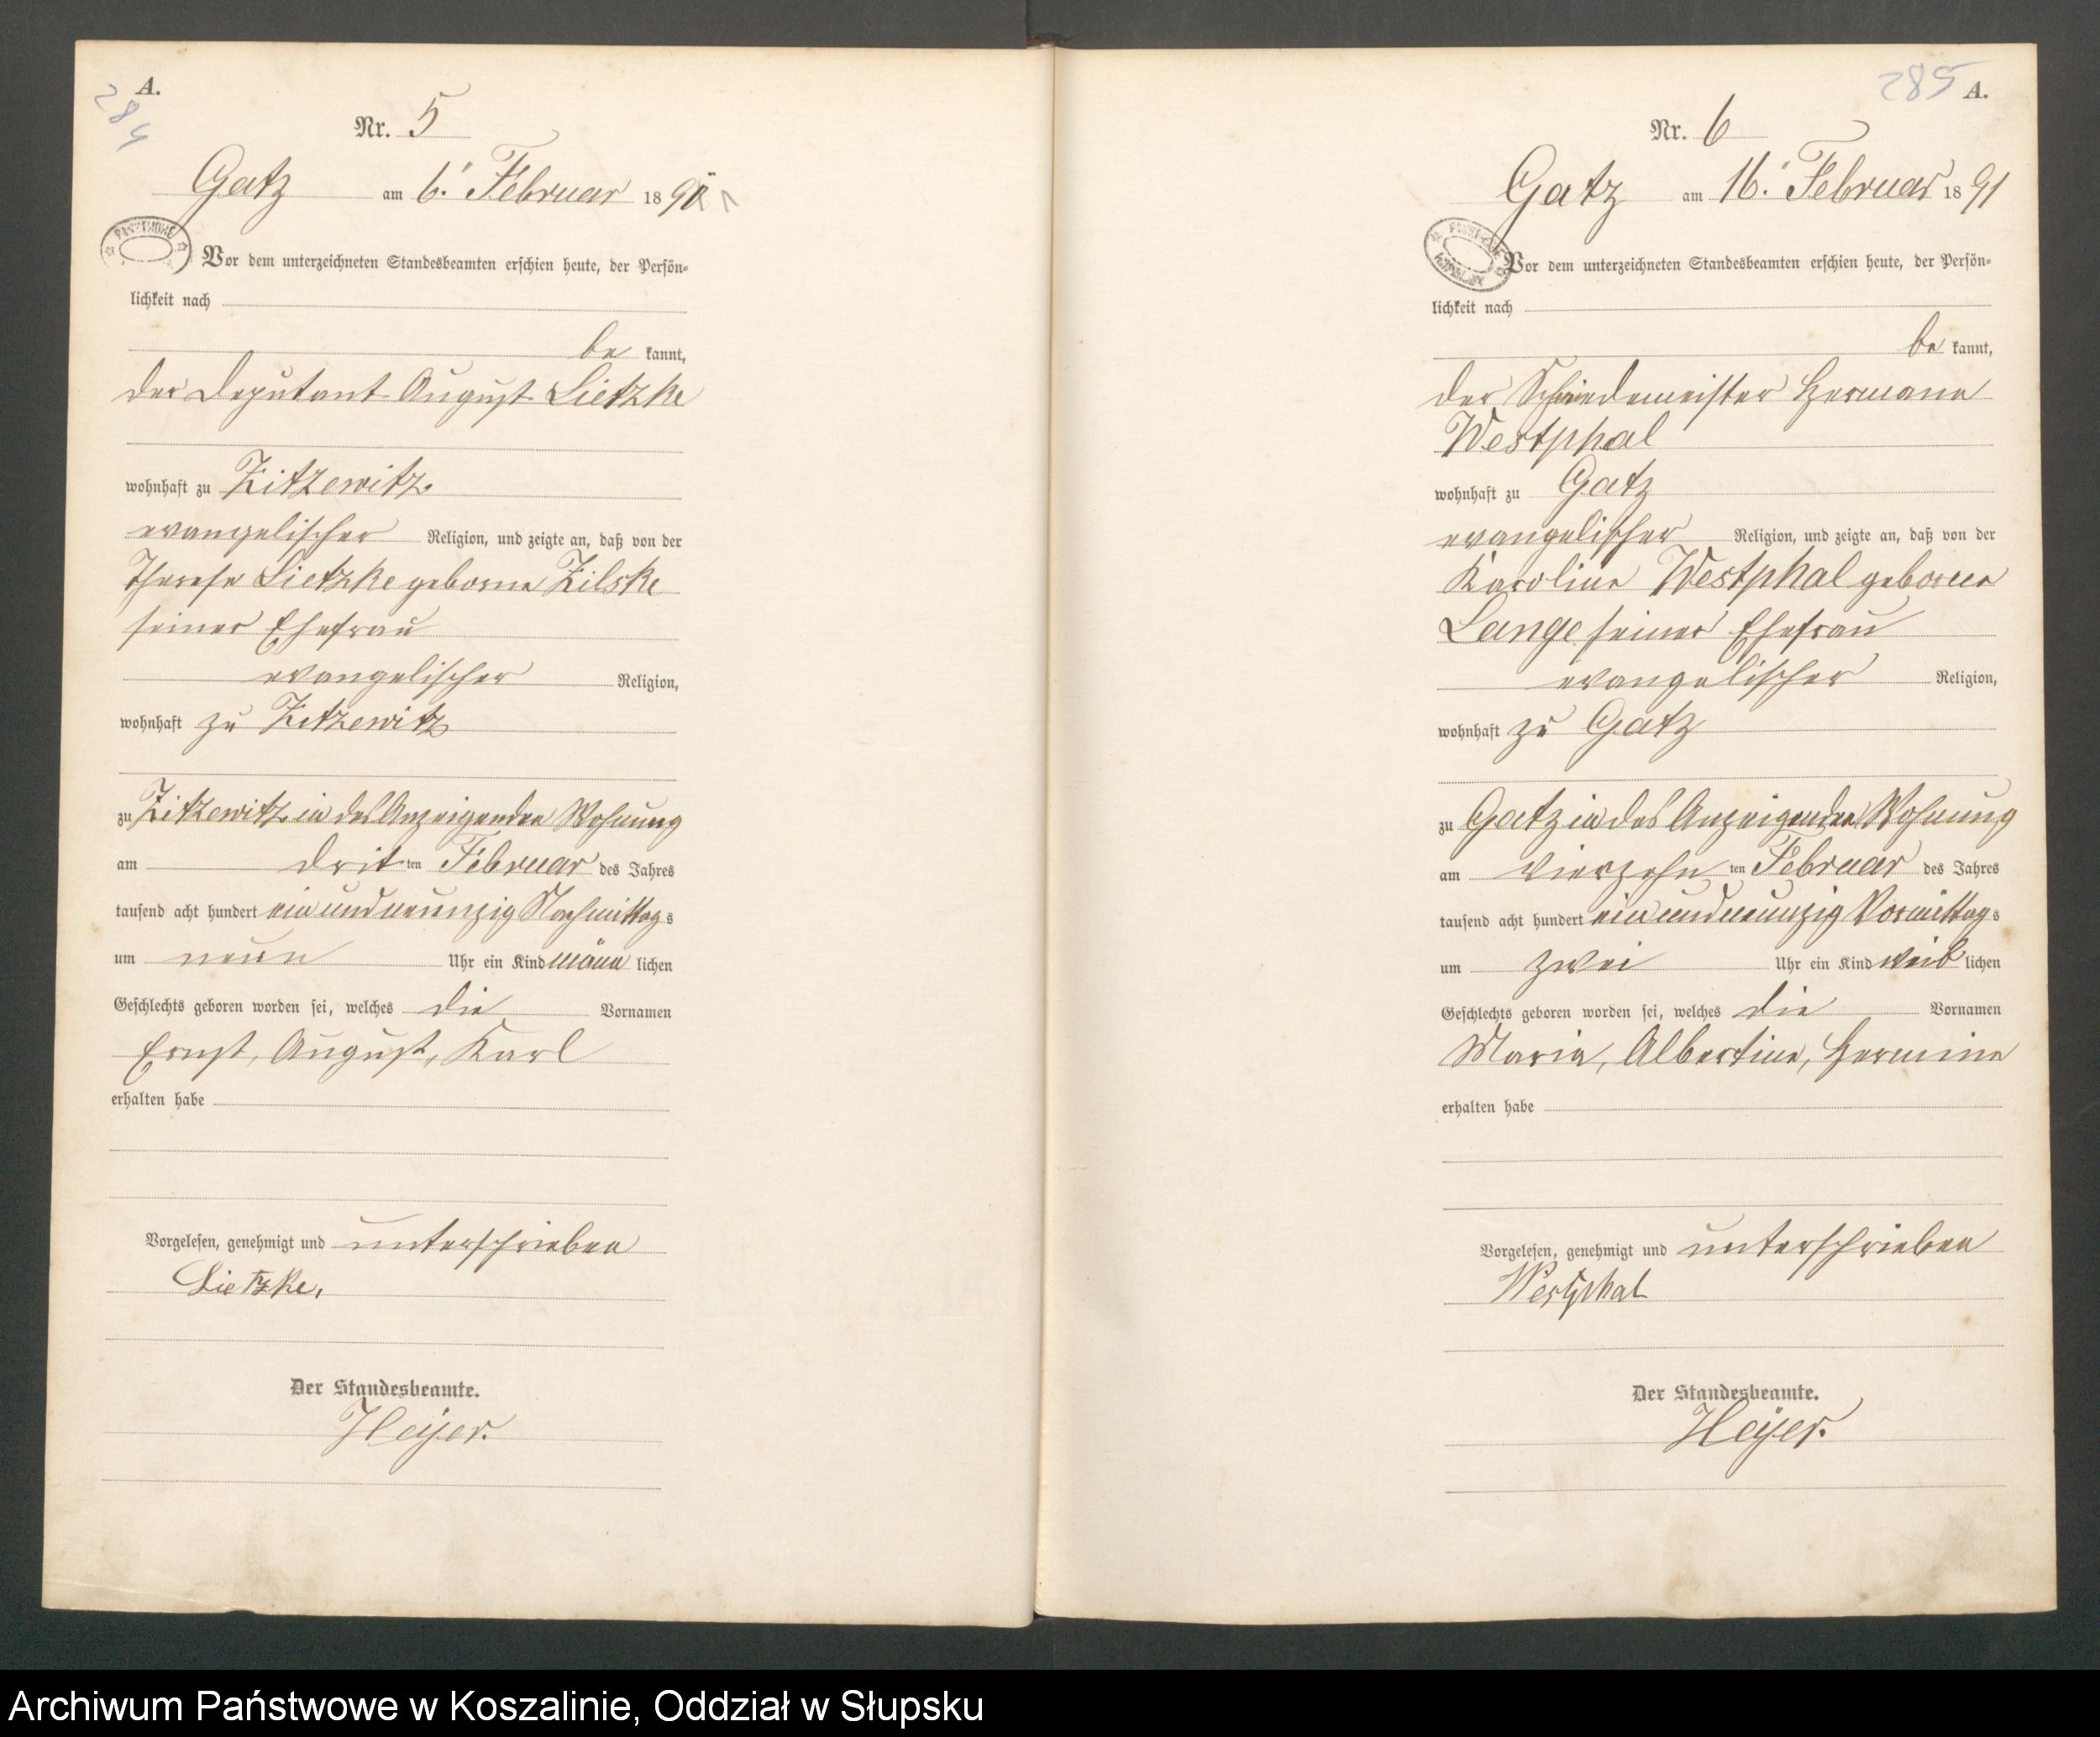 284
A.
Nr. 5
Gatz am 6. Februar 1891
Vor dem unterzeichneten Standesbeamten erschien heute, der Persön-
lichkeit nach
be kannt,
der Deputant August Lietzke
wohnhaft zu Zitzewitz
evangelischer Religion, und zeigte an, daß von der
Therese Lietzke geborne Zilske
seiner Ehefrau
evangelischer Religion,
wohnhaft zu Zitzewitz
zu Zitzewitz in des Anzeigenden Wohnung
am drit ten Februar des Jahres
tausend acht hundert ein und neunzig Nachmittag s
um neun Uhr ein Kind männ lichen
Geschlechts geboren worden sei, welches die Vornamen
Ernst, August, Karl
erhalten habe
Vorgelesen, genehmigt und unterschrieben
Lietzke.
Der Standesbeamte.
Heyer.
285 A.
Nr. 6
Gatz am 16. Februar 1891
Vor dem unterzeichneten Standesbeamten erschien heute, der Persön-
lichkeit nach
be kannt,
der Schmiedemeister Hermann
Westphal
wohnhaft zu Gatz
evangelischer Religion, und zeigte an, daß von der
Karoline Westphal geborne
Lange seiner Ehefrau
evangelischer Religion,
wohnhaft zu Gatz
zu Gatz in des Anzeigenden Wohnung
am vierzehn ten Februar des Jahres
tausend acht hundert ein und neunzig Vormittag s
um zwei Uhr ein Kind weib lichen
Geschlechts geboren worden sei, welches die Vornamen
Maria, Albertine, Hermine
erhalten habe
Vorgelesen, genehmigt und unterschrieben
Westphal
Der Standesbeamte.
Heyer.
Archiwum Państwowe w Koszalinie, Oddział w Słupsku